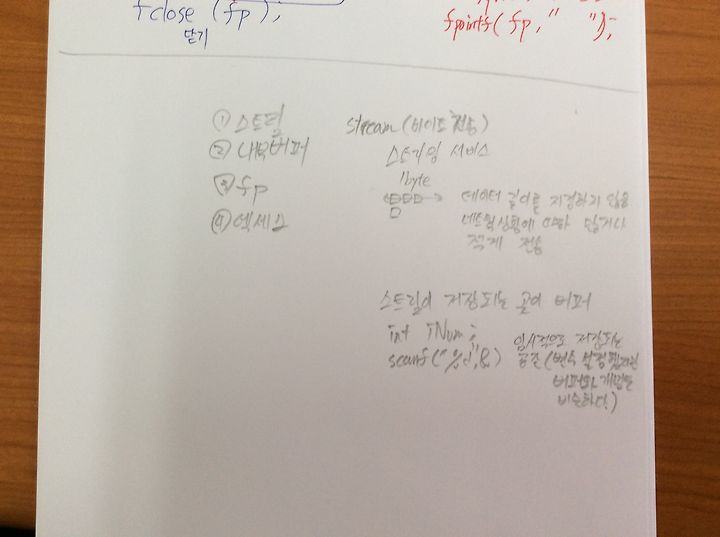 fclose (fp);
닫기
fpointf( fp, " ");
① 스트림
② 내부버퍼
③ fp
④ 엑세스
stream (바이트 전송)
스트리밍 서비스
1byte
데이터 길이를 지정하지 않음
네트웍상황에 따라 많거나
적게 전송
스트림이 저장되는 곳이 버퍼
int iNum;
scanf("%d",&)
임시적으로 저장되는
공간 (변수 설정했지만
버퍼와 개념은
비슷하다.)